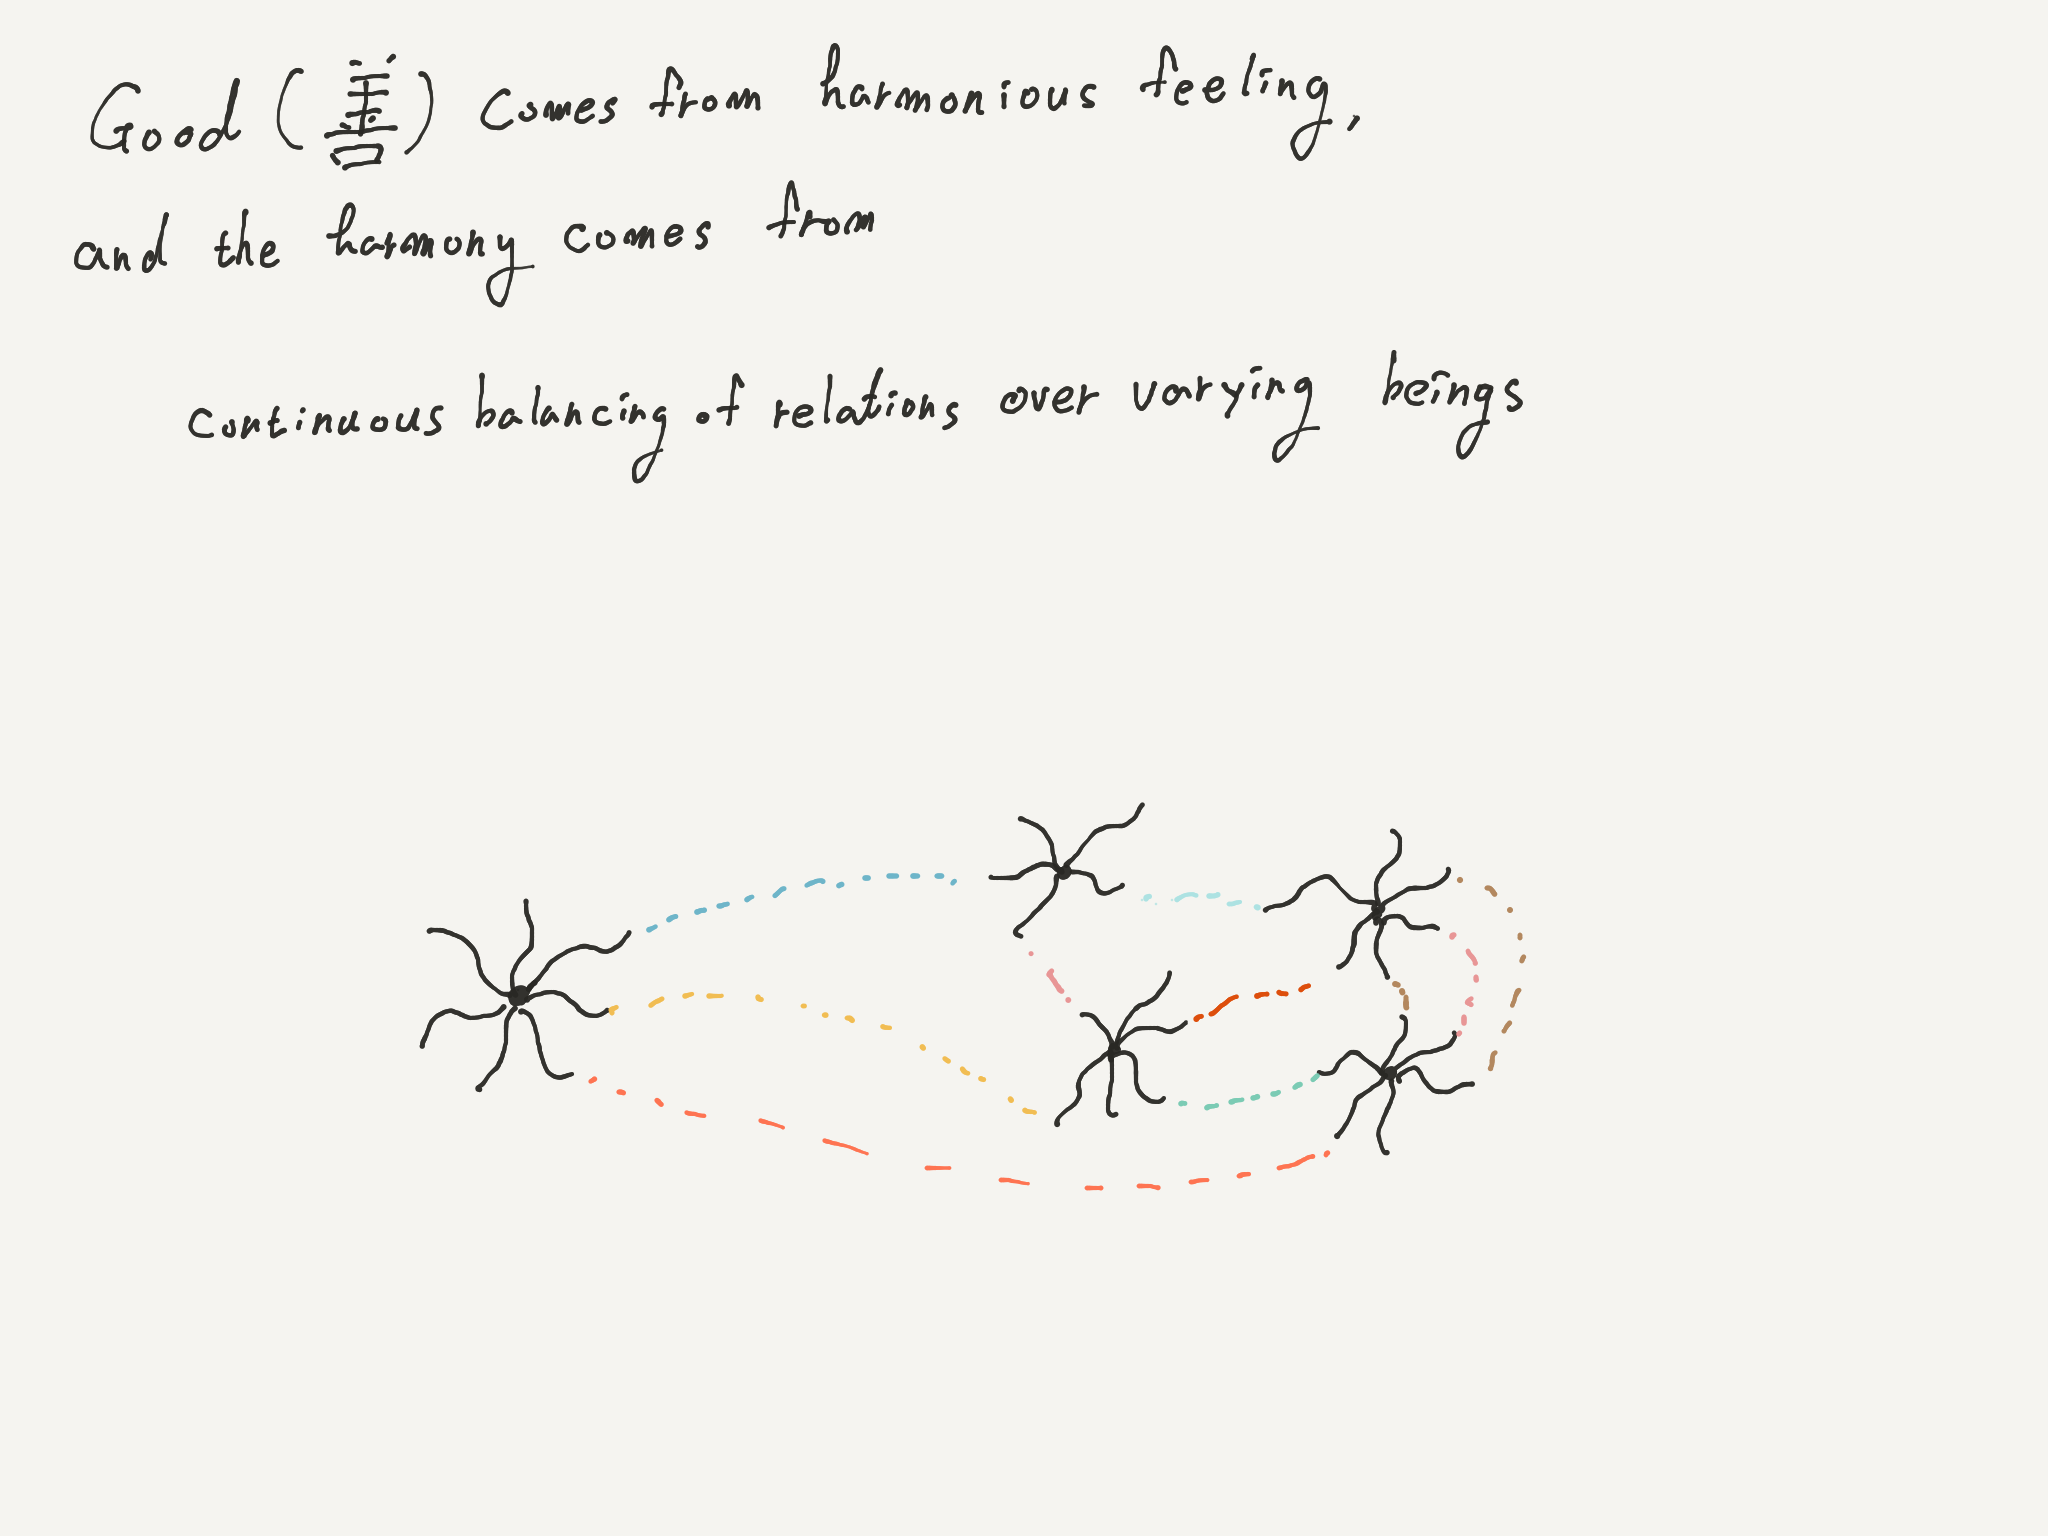 Good (善) comes from harmonious feeling,
and the harmony comes from
continuous balancing of relations over varying beings